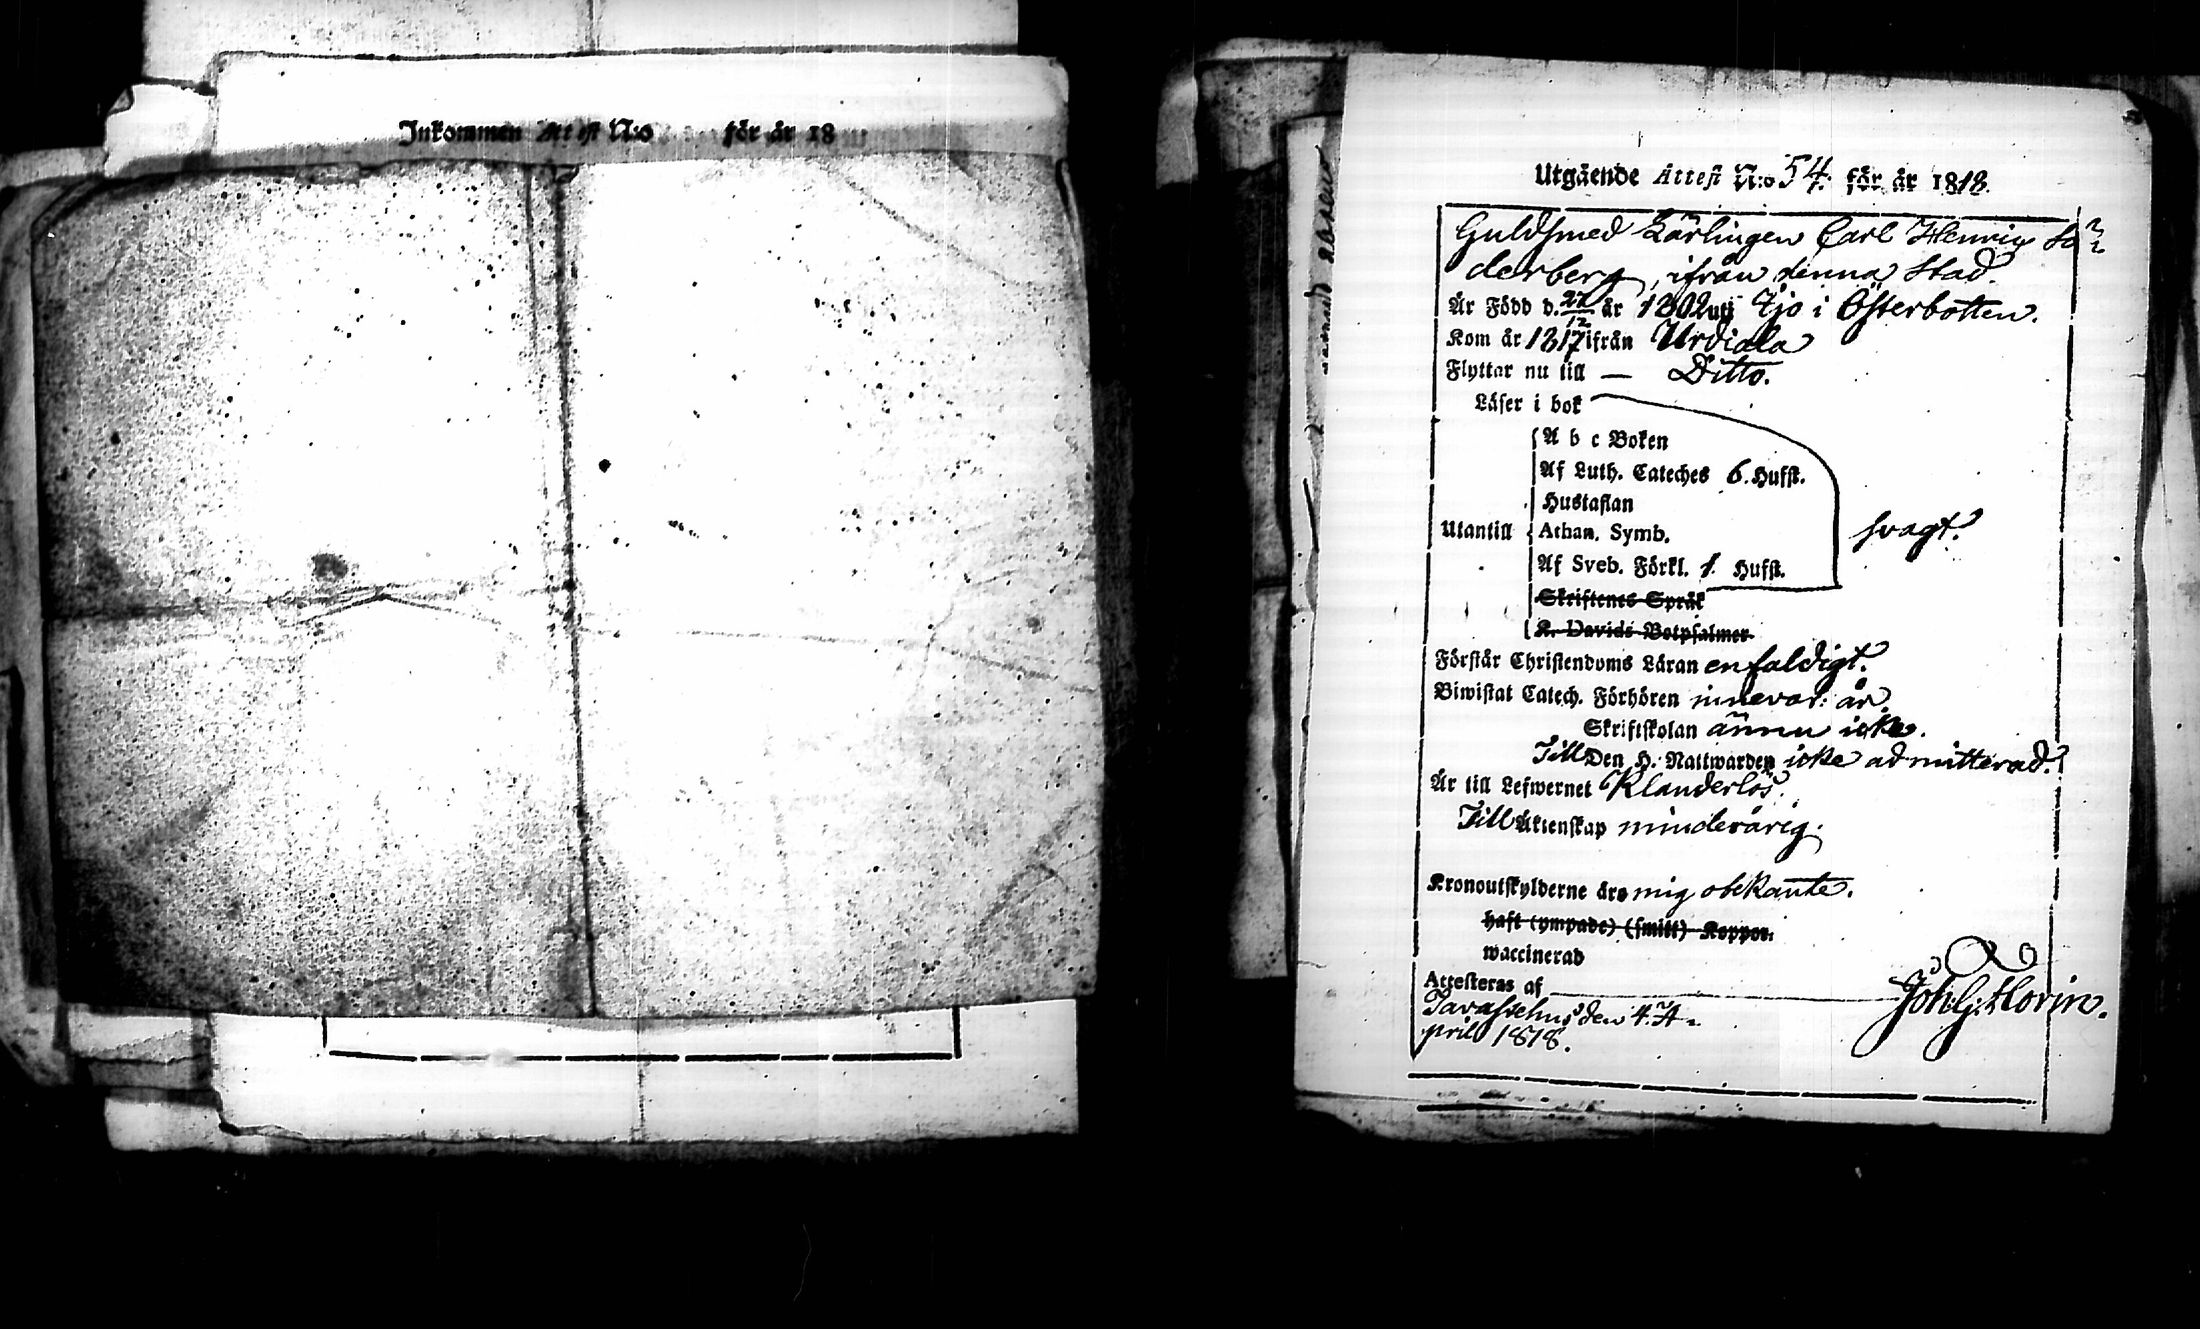 Inkommen Attest N:o för år 18
Utgående Attest N:o 54. för år 1818.
Guldsmed Lärlingen Carl Henric Sö=
derberg, ifrån denna Stad.
Är Född d. 27/12 år 1802 uti Ijo i Österbotten.
Kom år 1817 ifrån Urdiala
Flyttar nu till — Ditto.
Läser i bok
A b c Boken
Af Luth. Cateches 6. Hufst.
Hustaflan
Utantill Athan. Symb. svagt.
Af Sveb. Förkl. 1. Hufst.
Skriftenes Språk
K. Davids Botpsalmer
Förstår Christendoms Läran enfaldigt.
Biwistat Catech. Förhören innevar: år.
Skriftskolan ännu icke.
Till Den H. Nattwarden icke admitterad.
Är till Lefwernet Klanderlös.
Till Äktenskap minderårig.
Kronoutskylderne äro mig obekante.
haft (ympade) (smitt) Koppor.
waccinerad
Attesteras af Joh: G: Florin.
Tavastehus den 4. A=
pril 1818.